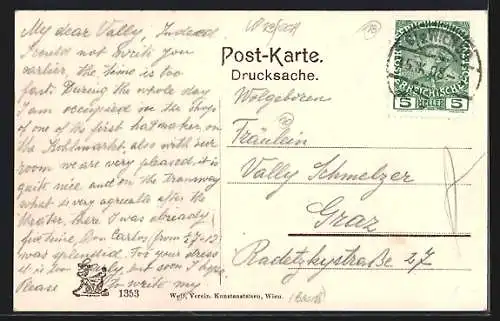 My dear Vally, Indeed
I could not write you
earlier, the time is too
fast. During the whole day
I am occupied on the shop
of one of the first hatmaker on
the Kohlmarkt, also with our
room we are very pleased, it is
quite nice and on the Tramway
what is very agreable after the
theater, there I was already
five time, Don Carlos (from 27-12)
was splendid. For your dress
it is too early, but soon I hope
Please to write my
1353
Post-Karte.
Drucksache.
Wolgeboren
Fräulein
Vally Schmelzer
Graz
Radetzkystraße 27
Weiß, Verein. Kunstanstalten, Wien.
5 HELLER 5